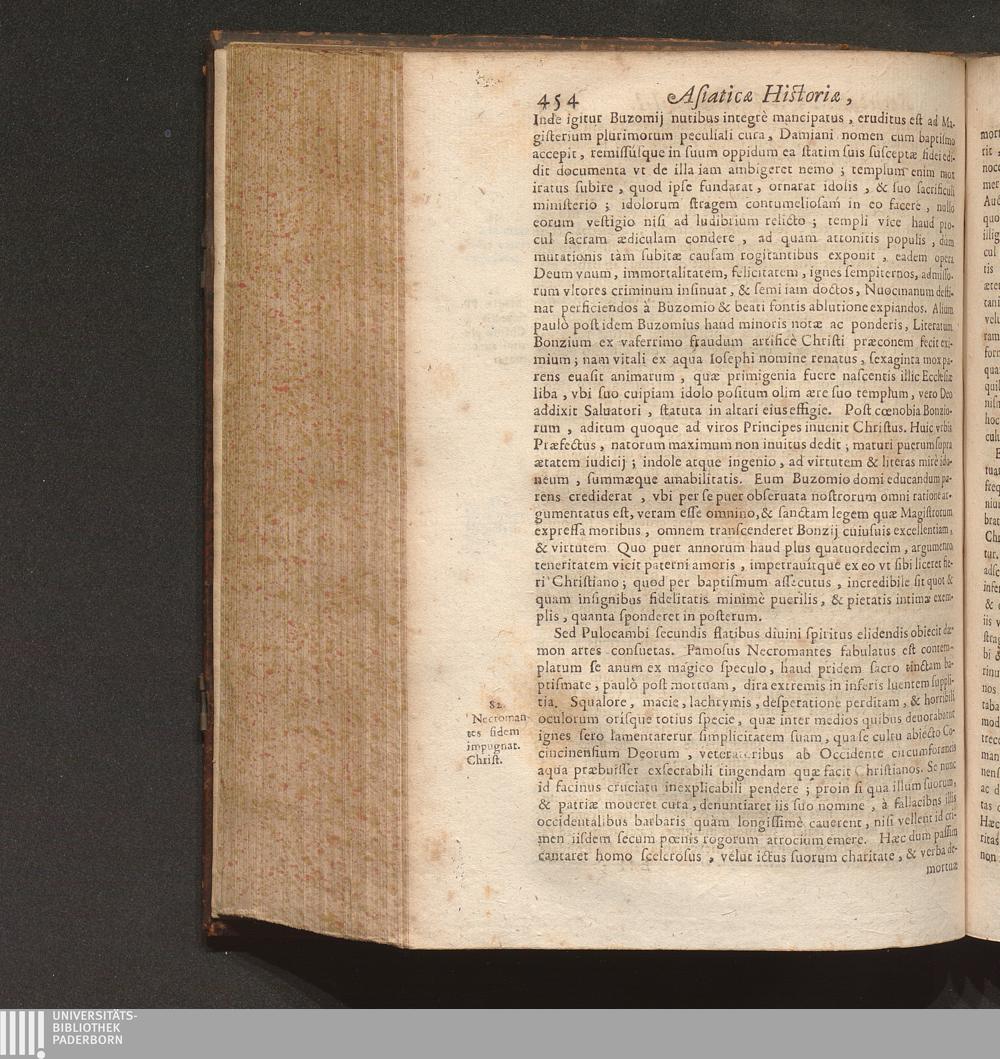 454 Asiaticæ Historiæ,
Inde igitur Buzomij nutibus integrè mancipatus, eruditus est ad Ma-
gisterium plurimorum peculiali cura, Damiani nomen cum baptismo
accepit, remissúsque in suum oppidum ea statim suis susceptæ fidei edi-
dit documenta vt de illa iam ambigeret nemo; templum enim mox
iratus subire, quod ipse fundarat, ornarat idolis, & suo sacrificuli
ministerio; idolorum stragem contumeliosam in eo facere, nullo
eorum vestigio nisi ad ludibrium relicto; templi vice haud pro-
cul sacram ædiculam condere, ad quam attonitis populis, dum
mutationis tam subitæ causam rogitantibus exponit, eadem opera
Deum vnum, immortalitatem, felicitatem, ignes sempiternos, admisso-
rum vltores criminum insinuat, & semi iam doctos, Nuocmanum desti-
nat perficiendos à Buzomio & beati fontis ablutione expiandos. Alium
paulò post idem Buzomius haud minoris notæ ac ponderis, Literatum
Bonzium ex vaferrimo fraudum artifice Christi præconem fecit exi-
mium; nam vitali ex aqua Iosephi nomine renatus, sexaginta mox pa-
rens euasit animarum, quæ primigenia fuere nascentis illic Ecclesiæ
liba, vbi suo cuipiam idolo positum olim ære suo templum, vero Deo
addixit Saluatori, statuta in altari eius effigie. Post cœnobia Bonzio-
rum, aditum quoque ad viros Principes inuenit Christus. Huic vrbis
Præfectus, natorum maximum non inuitus dedit; maturi puerum supra
ætatem iudicij; indole atque ingenio, ad virtutem & literas mirè ido-
neum, summæque amabilitatis. Eum Buzomio domi educandum pa-
rens crediderat, vbi per se puer obseruata nostrorum omni ratione ar-
gumentatus est, veram esse omnino, & sanctam legem quæ Magistrorum
expressa moribus, omnem transcenderet Bonzij cuiusuis excellentiam,
& virtutem. Quo puer annorum haud plus quatuordecim, argumento
teneritatem vicit paterni amoris, impetrauitque ex eo vt sibi liceret fie-
ri Christiano; quod per baptismum assecutus, incredibile sit quot &
quam insignibus fidelitatis minimè puerilis, & pietatis intimæ exem-
plis, quanta sponderet in posterum.
Sed Pulocambi secundis flatibus diuini spiritus elidendis obiecit dæ-
mon artes consuetas. Famosus Necromantes fabulatus est contem-
platum se anum ex magico speculo, haud pridem sacro tinctam ba-
ptismate, paulò post mortuam, dira extremis in inferis luentem suppli-
tia. Squalore, macie, lachrymis, desperatione perditam, & horribili
oculorum orisque totius specie, quæ inter medios quibus deuorabatur
ignes sero lamentarerur simplicitatem suam, qua se cultu abiecto Co-
cincinensium Deorum, veteratoribus ab Occidente circumforaneis
aqua præbuisset exsecrabili tingendam quæ facit Christianos. Se nunc
id facinus cruciatu inexplicabili pendere; proin si qua illum suorum,
& patriæ moueret cura, denuntiaret iis suo nomine, à fallacibus illis
occidentalibus barbaris quàm longissimè cauerent, nisi vellent id cri-
men iisdem secum pœnis rogorum atrocium emere. Hæc dum passim
cantaret homo scelerosus, velut ictus suorum charitate, & verba de-
mortuæ
82.
Necroman-
tes fidem
impugnat.
Christ.
UNIVERSITÄTS-
BIBLIOTHEK
PADERBORN